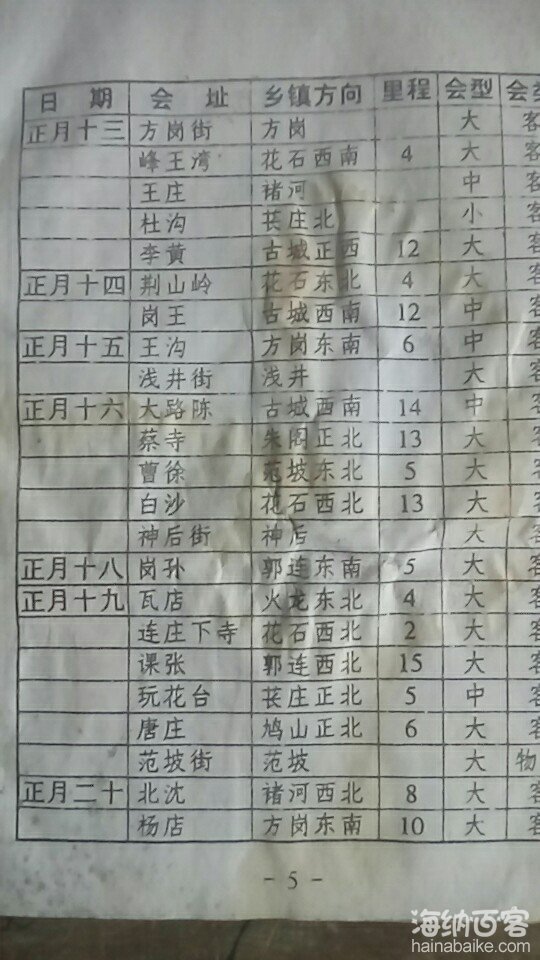 日 期 会 址 乡镇方向 里程 会型 会
正月十三 方岗街 方岗 大 客
峰王湾 花石西南 4 大 客
王庄 诸河 中 客
杜沟 苌庄北 小 客
李黄 古城正西 12 大 客
正月十四 荆山岭 花石东北 4 大 客
岗王 古城西南 12 中 客
正月十五 王沟 方岗东南 6 中 客
浅井街 浅井 大 客
正月十六 大路陈 古城西南 14 中 客
蔡寺 朱阁正北 13 大 客
曹徐 范坡东北 5 大 客
白沙 花石西北 13 大 客
神后街 神后 大 客
正月十八 岗孙 郭连东南 5 大 客
正月十九 瓦店 火龙东北 4 大 客
连庄下寺 花石西北 2 大 客
课张 郭连西北 15 大 客
玩花台 苌庄正北 5 中 客
唐庄 鸠山正北 6 大 客
范坡街 范坡 大 物
正月二十 北沈 诸河西北 8 大 客
杨店 方岗东南 10 大 客
- 5 -
海纳百客
hainabaike.com